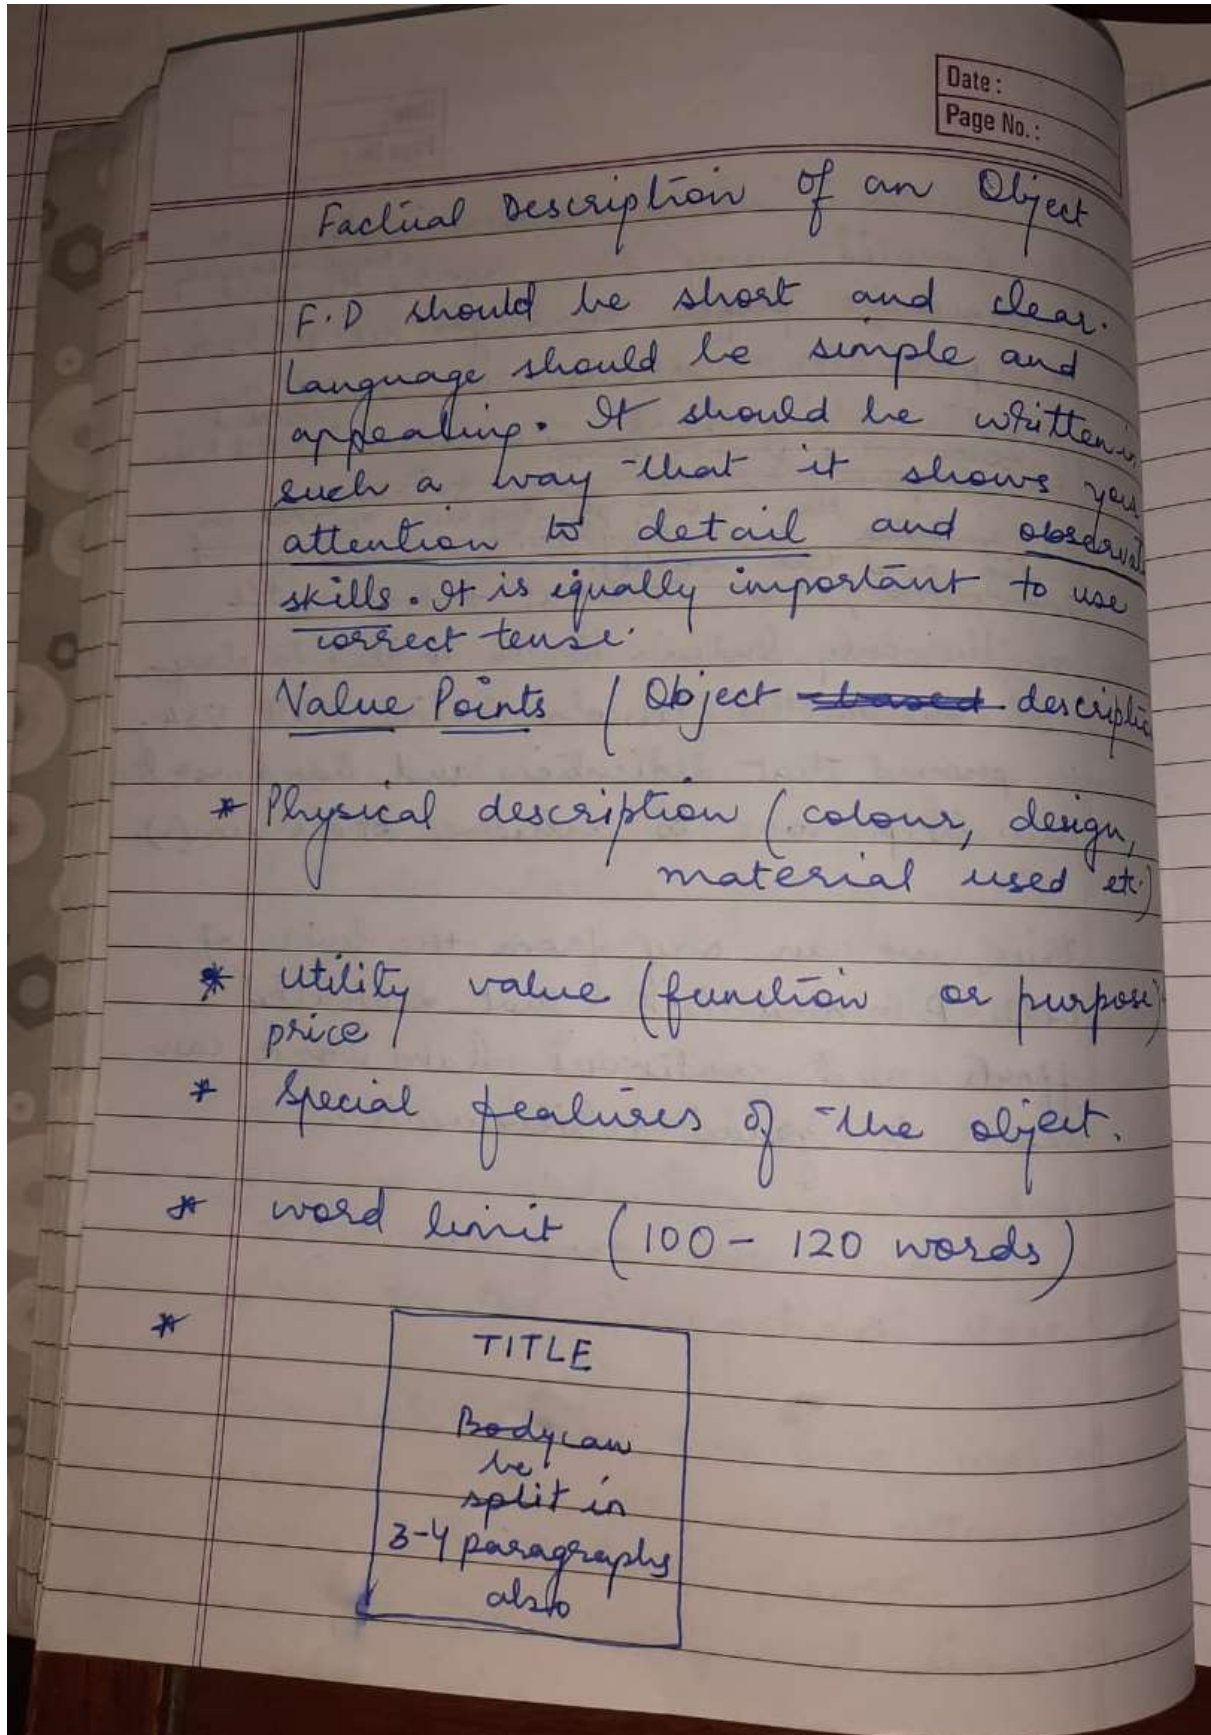 Date :
Page No. :
Factual Description of an Object
F.D should be short and clear.
Language should be simple and
appealing. It should be written in
such a way that it shows your
attention to detail and observat
skills. It is equally important to use
correct tense.
Value Points / Object based descriptio
* Physical description (colour, design,
material used etc.)
* Utility value (function or purpose)
price
* Special features of the object.
* word limit (100 - 120 words)
*
TITLE
Body can
be
split in
3-4 paragraphs
also